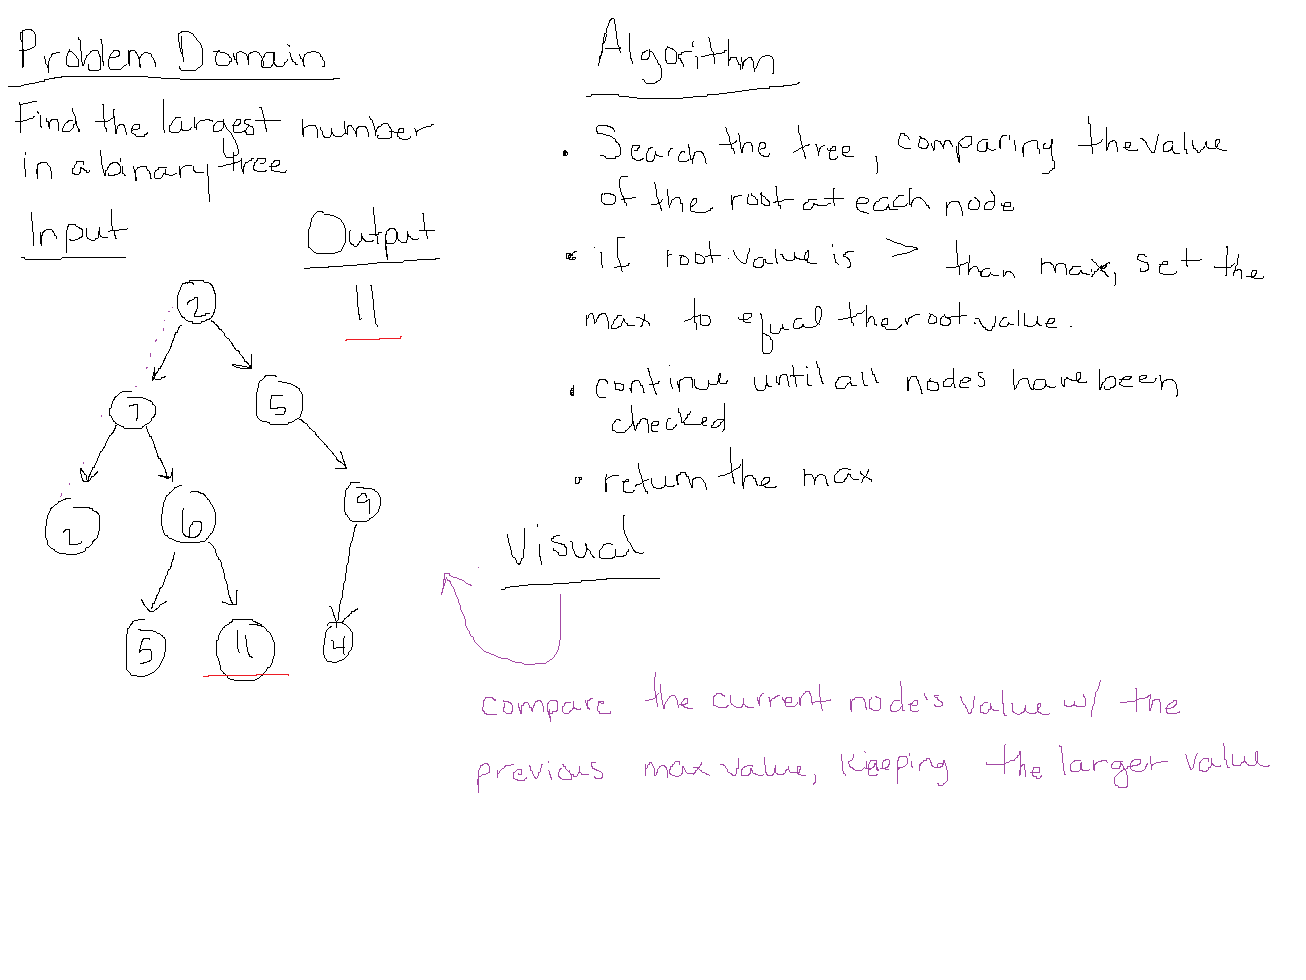 Problem Domain
Find the largest number
in a binary tree
Input
Output
2
11
7
5
2
6
9
5
11
4
Algorithm
• Search the tree, comparing the value
of the root at each node
• if root.value is > than max, set the
max to equal the root.value.
• continue until all nodes have been
checked
• return the max
Visual
compare the current node's value w/ the
previous max value, keeping the larger value